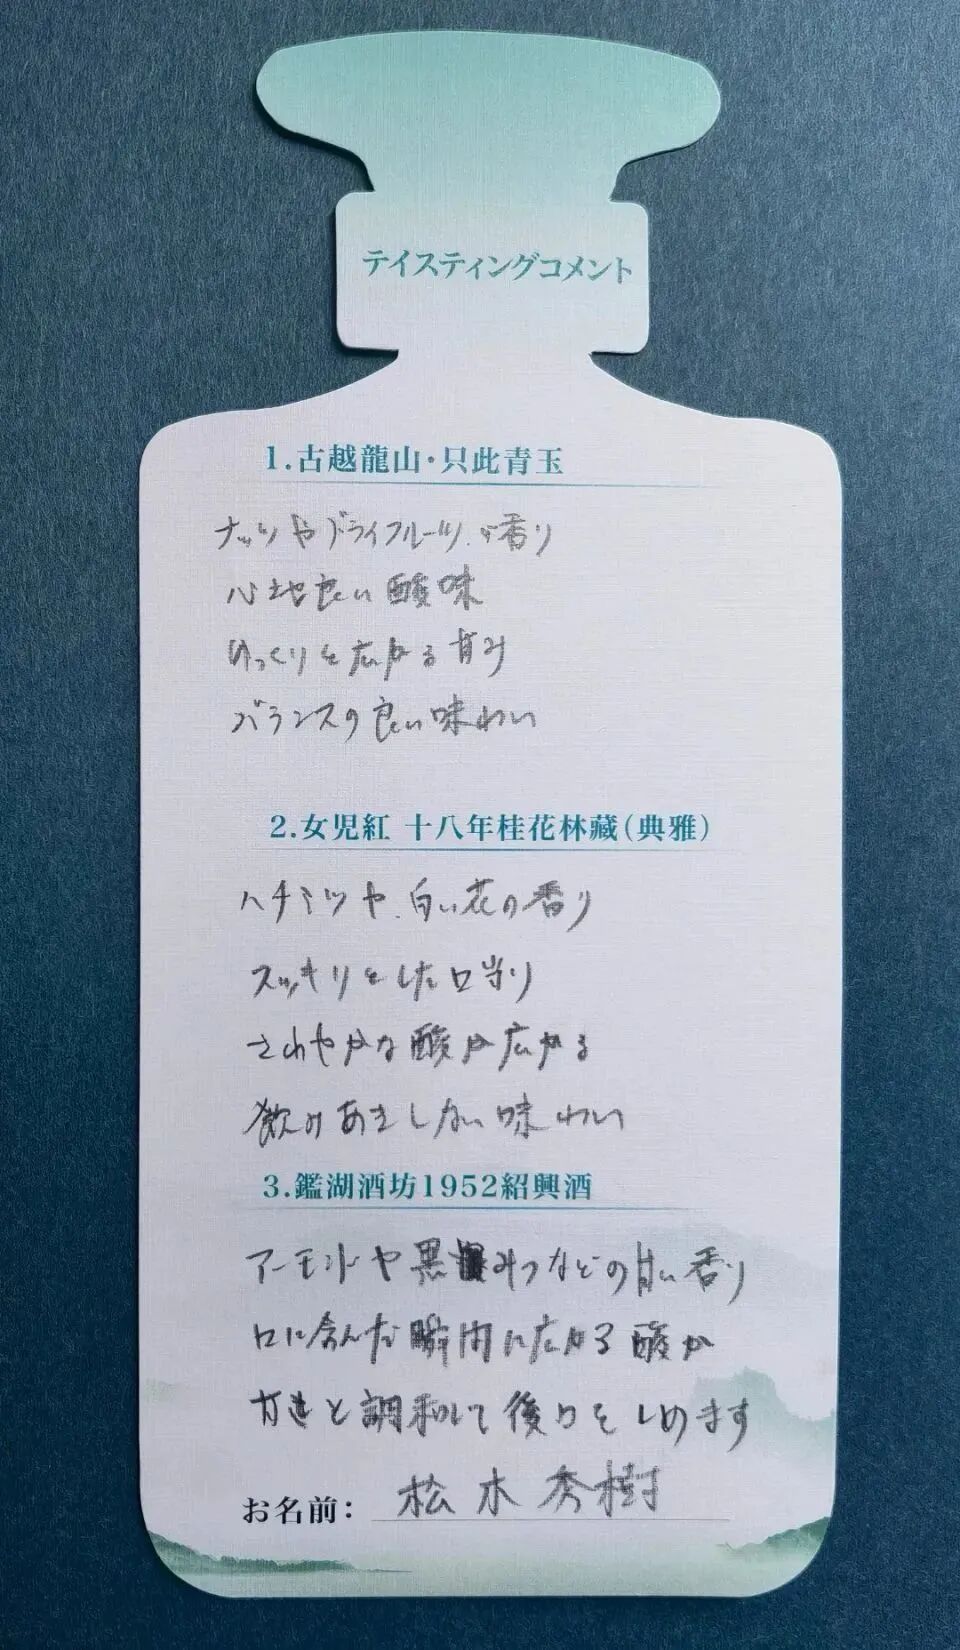 テイスティングコメント
1.古越龍山・只此青玉
ナッツやドライフルーツの香り
心地良い酸味
ゆっくりと広がる甘み
バランスの良い味わい
2.女児紅 十八年桂花林藏(典雅)
ハチミツや、白い花の香り
スッキリとした口当り
さわやかな酸が広がる
飲みあきしない味わい
3.鑑湖酒坊1952紹興酒
アーモンドや黒みつなどの甘い香り
口に含んだ瞬間に広がる酸が
と調和して後口をしめます
お名前: 松木秀樹